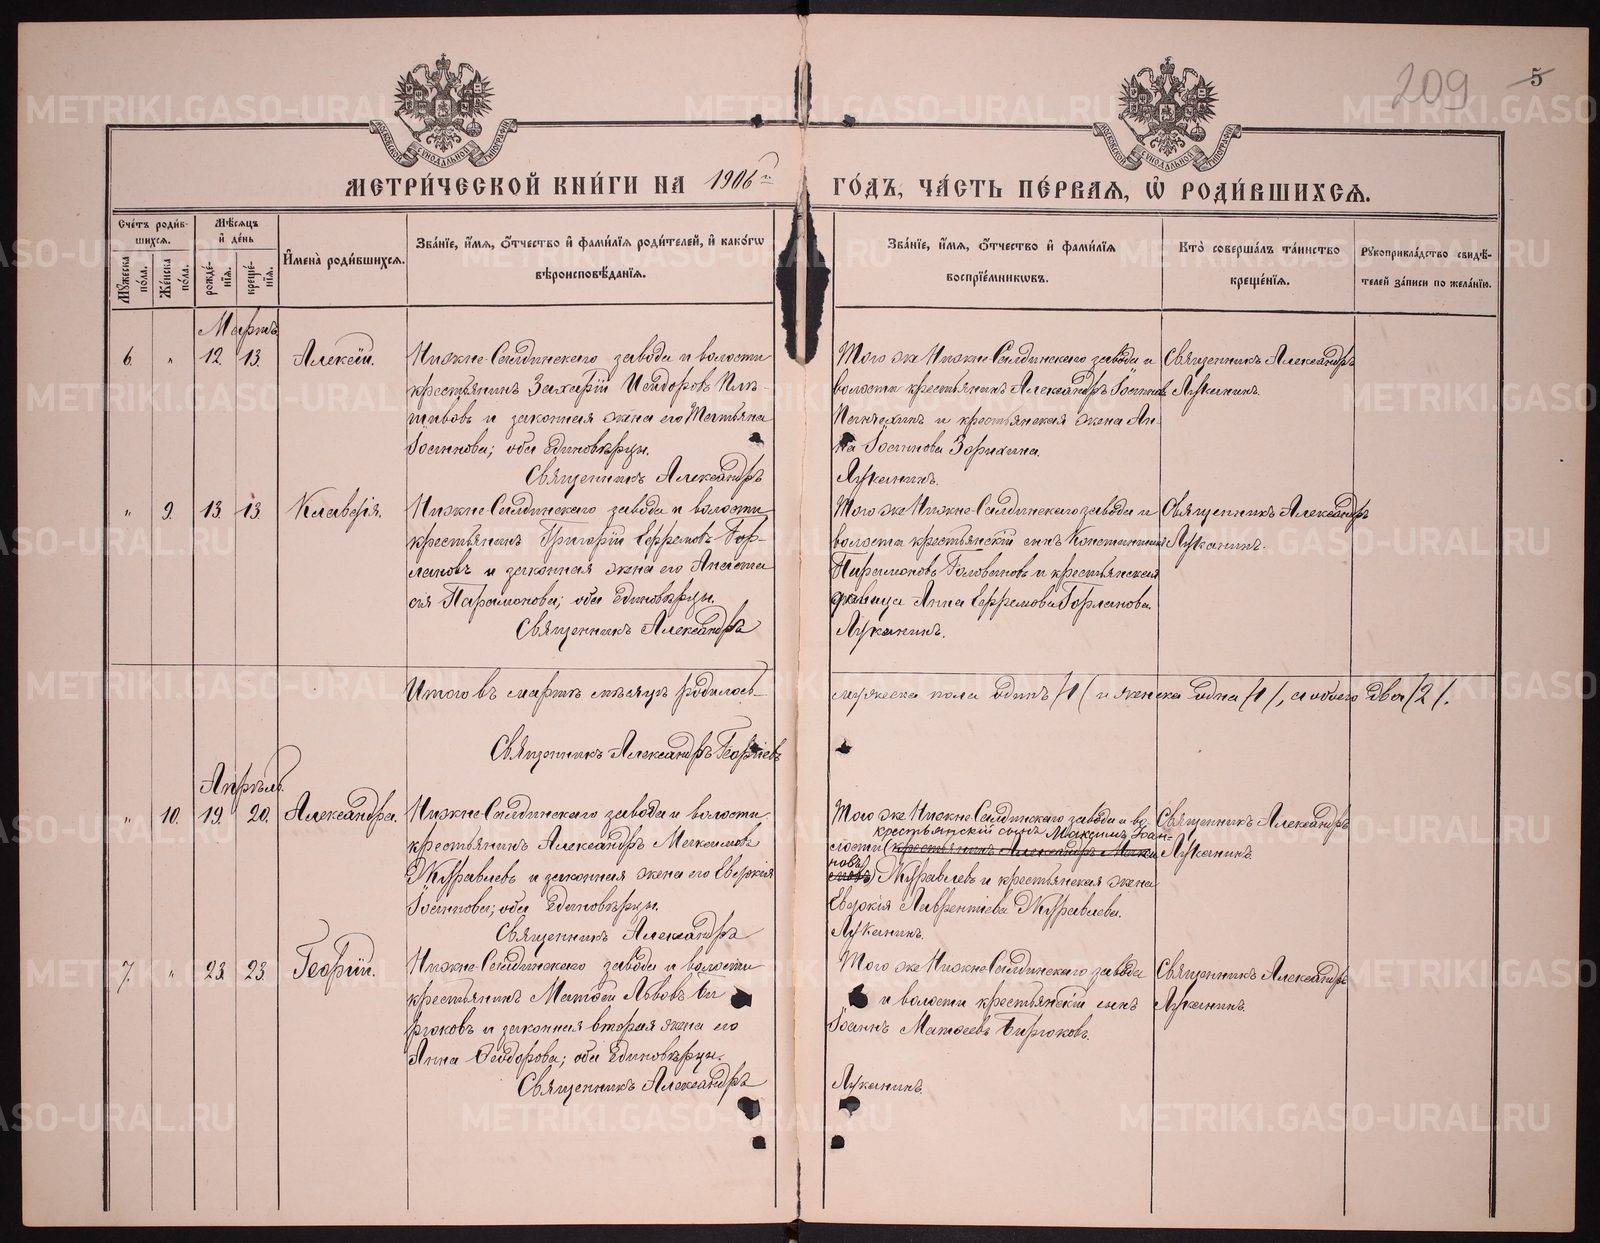 209 5
МЕТРИ́ЧЕСКОЙ КНИ́ГИ НА 1906й ГО́ДЪ, ЧА́СТЬ ПЕ́РВАЯ, Ѡ҆ РОДИ́ВШИХСЯ.
Сче́тъ роди́в-
шихся.
Мꙋ́жеска по́ла.
Же́нска по́ла.
Мѣ́сяцъ
и҆ де́нь
рожде́-
нїя.
креще́-
нїя.
И҆мена̀ роди́вшихся.
Зва́нїе, и҆́мя, ѻ҆́тчество и҆ фами́лїя роди́телей, и҆ како́гѡ
вѣроисповѣ́данїя.
Зва́нїе, и҆́мя, ѻ҆́тчество и҆ фами́лїя
воспрїе́мникѡвъ.
Кто̀ соверша́лъ та́инство
креще́нїя.
Рꙋкоприкла́дство свидѣ́-
телей за́писи по жела́нїю.
Мартъ
6. " 12. 13. Алексѣй.
Нижне-Салдинскаго завода и волости
крестьянинъ Захарій Исидоровъ
и законная жена его Татьяна
Іоаннова; оба единовѣрцы.
Священникъ Александръ
Того же Нижне-Салдинскаго завода и
волости крестьянинъ Александръ Іоаннов
и крестьянская жена Ан-
на Іоаннова Зорихина.
Луканинъ.
Священникъ Александръ
Луканинъ.
" 9. 13. 13. Клавдія.
Нижне-Салдинскаго завода и волости
крестьянинъ Григорій Ефремовъ Гор-
лановъ и законная жена его Анаста
сія Парамонова; оба единовѣрцы.
Священникъ Александръ
Того же Нижне-Салдинскаго завода и
волости крестьянскій сынъ Константинъ
Парамоновъ Головановъ и крестьянская
дѣвица Анна Ефремова Горланова.
Луканинъ.
Священникъ Александръ
Луканинъ.
Итого въ мартѣ мѣсяцѣ родилось
мужеска пола одинъ /1/ и женска одна /1/, а обоего два /2/.
Священникъ Александръ Георгіевъ
Апрѣль.
" 10. 19. 20. Александра.
Нижне-Салдинскаго завода и волости
крестьянинъ Александръ Максимовъ
Журавлевъ и законная жена его Евдокія
Іоаннова; оба единовѣрцы.
Священникъ Александръ
Того же Нижне-Салдинскаго завода и во-
крестьянскій сынъ Максимъ Іоан-
лости (крестьянинъ Александръ Макси
новъ
мовъ) Журавлевъ и крестьянская жена
Евдокія Лаврентіева Журавлева.
Луканинъ.
Священникъ Александръ
Луканинъ.
7. " 23. 23. Георгій.
Нижне-Салдинскаго завода и волости
крестьянинъ Матѳей Львовъ Би
рюковъ и законная вторая жена его
Анна Ѳеодорова; оба единовѣрцы.
Священникъ Александръ
Того же Нижне-Салдинскаго завода
и волости крестьянскій сынъ
Іоаннъ Матѳеевъ Бирюковъ.
Луканинъ.
Священникъ Александръ
Луканинъ.
METRIKI.GASO-URAL.RU